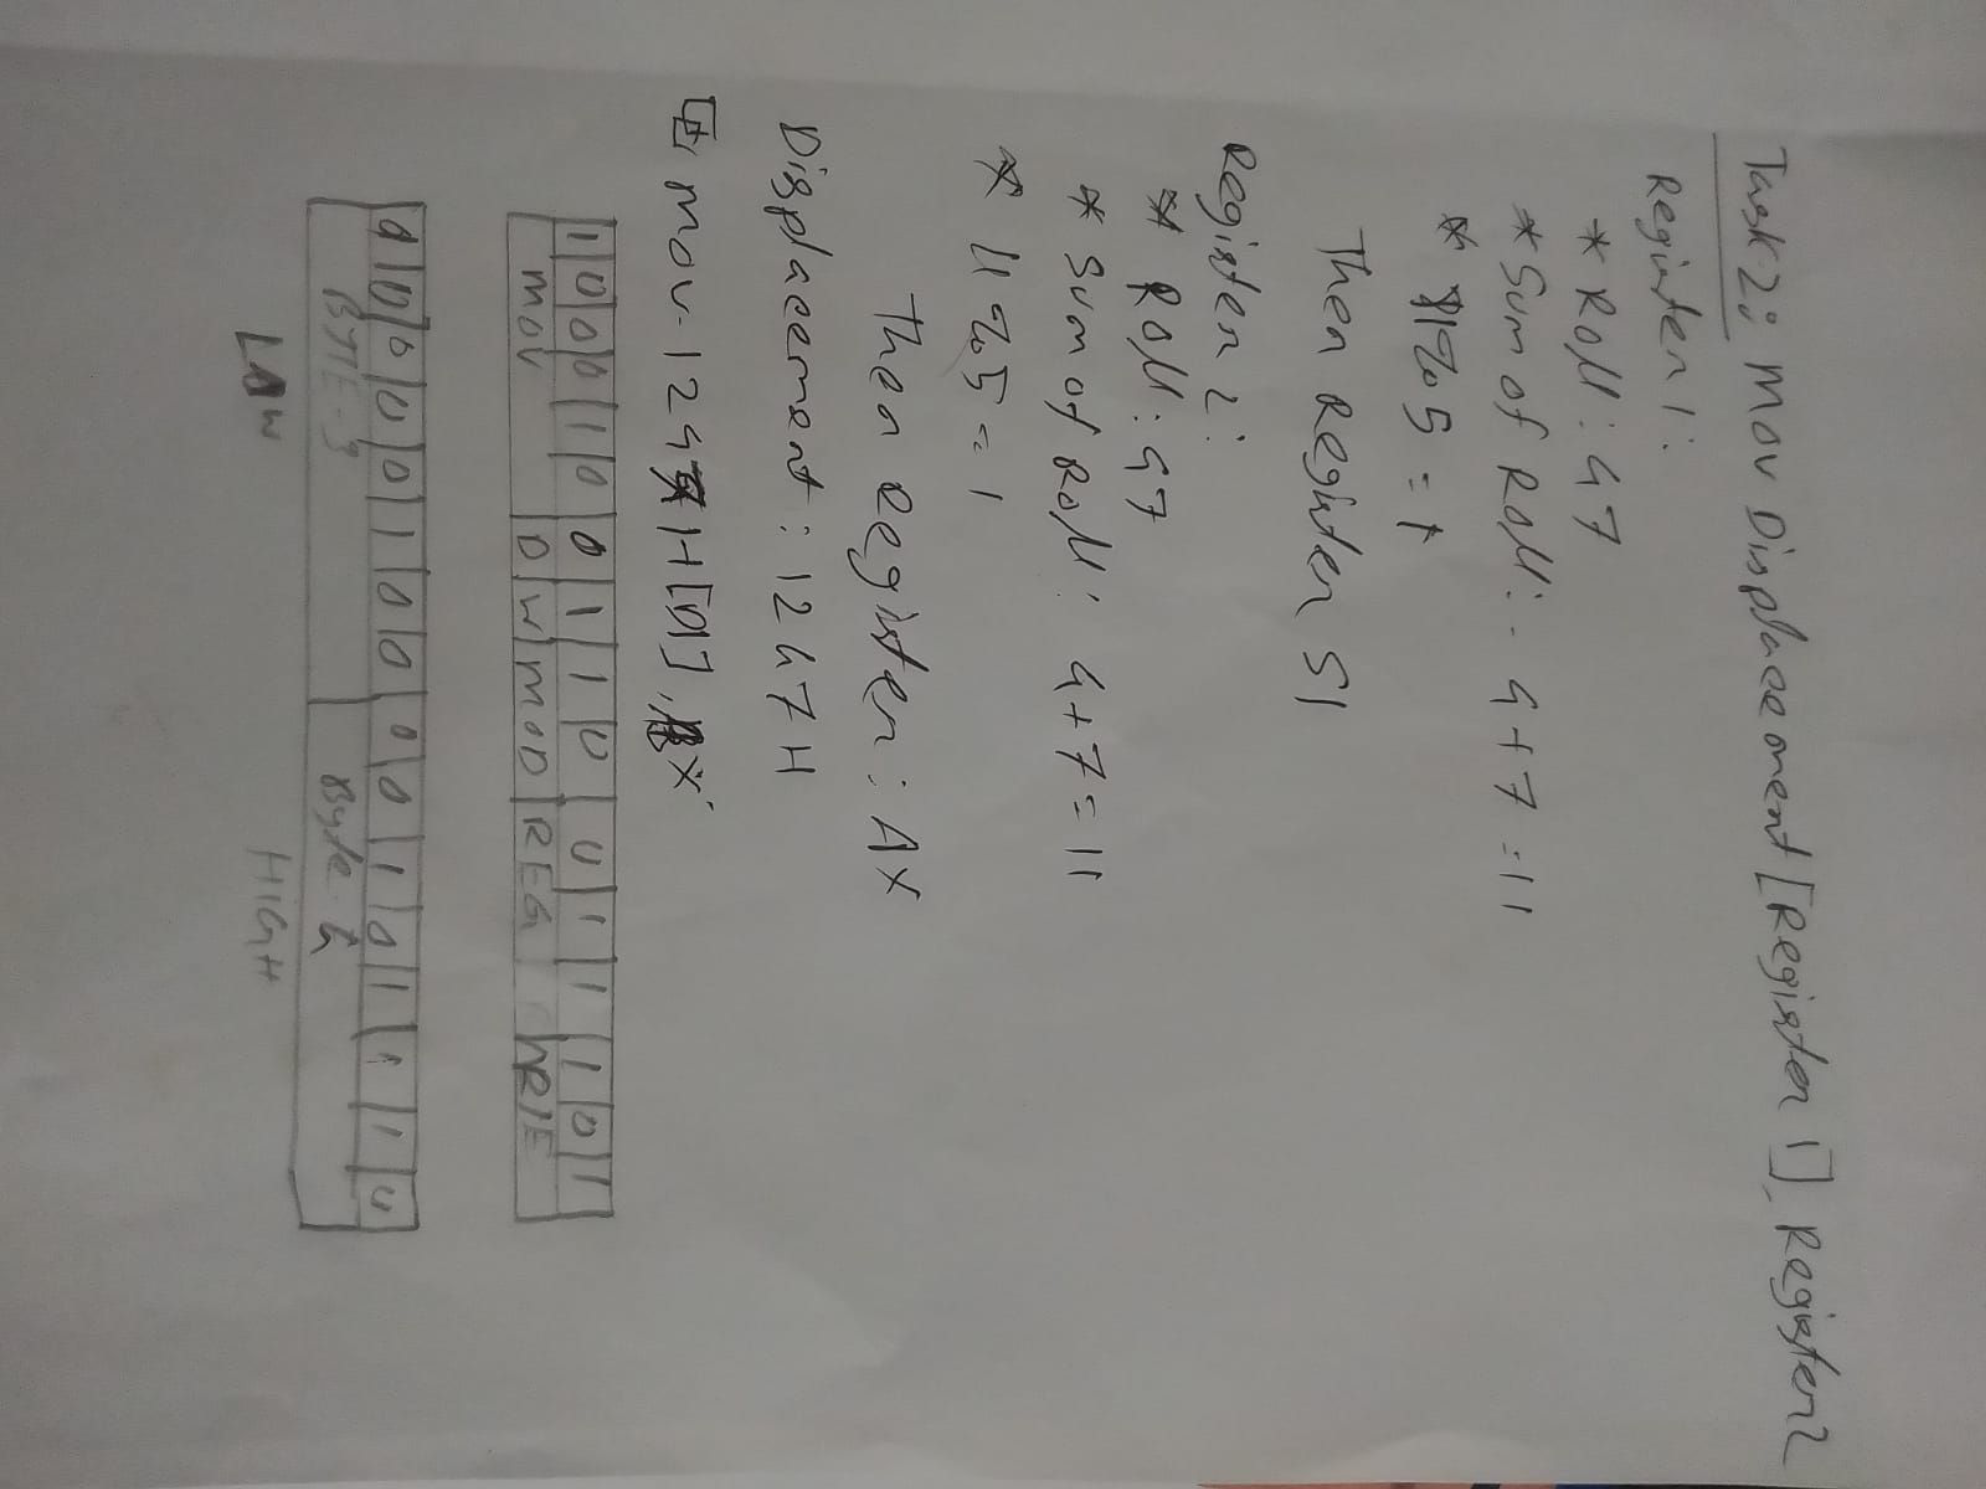 Task2: Mov Displaceement [Register 1], Register2
Register1:
* Roll: 47
* Sum of Roll: - 4+7 = 11
* 11%5 = 1
Then Register SI
Register 2:
* Roll: 47
* Sum of Roll: 4+7 = 11
* 11 %5 = 1
Then Register: AX
Displacement: 1247H
mov-124 H[DI], X
1 0 0 0 1 0 0 1 1 0 0 1 1 1 0 1
MOV D W MOD REG R/E
0 0 0 0 0 1 0 0 0 0 1 0 1 1 1 0
BYTE-3 Byte-4
LOW HIGH